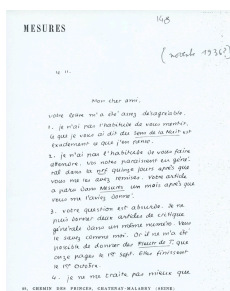 MESURES
148
(novembre 1936?)
le 11.
Mon cher ami,
votre lettre m'a été assez désagréable.
1. je n'ai pas l'habitude de vous mentir.
ce que je vous ai dit des Sens de la Nuit est
exactement ce que j'en pense.
2. je n'ai pas l'habitude de vous faire
attendre. Vos notes paraissent en géné-
ral dans la nrf quinze jours après que
vous me les avez remises. Votre article
a paru dans Mesures un mois après que
vous me l'aviez donné.
3. votre question est absurde. Je ne
puis donner deux articles de critique
générale dans un même numéro. Vous
le savez comme moi. Or il ne m'a été
possible de donner des Fleurs de T. que
onze pages le 1er Sept. Elles finissent
le 1er Octobre.
4. je ne me traite pas mieux que
21, CHEMIN DES PRINCES, CHATENAY-MALABRY (SEINE)